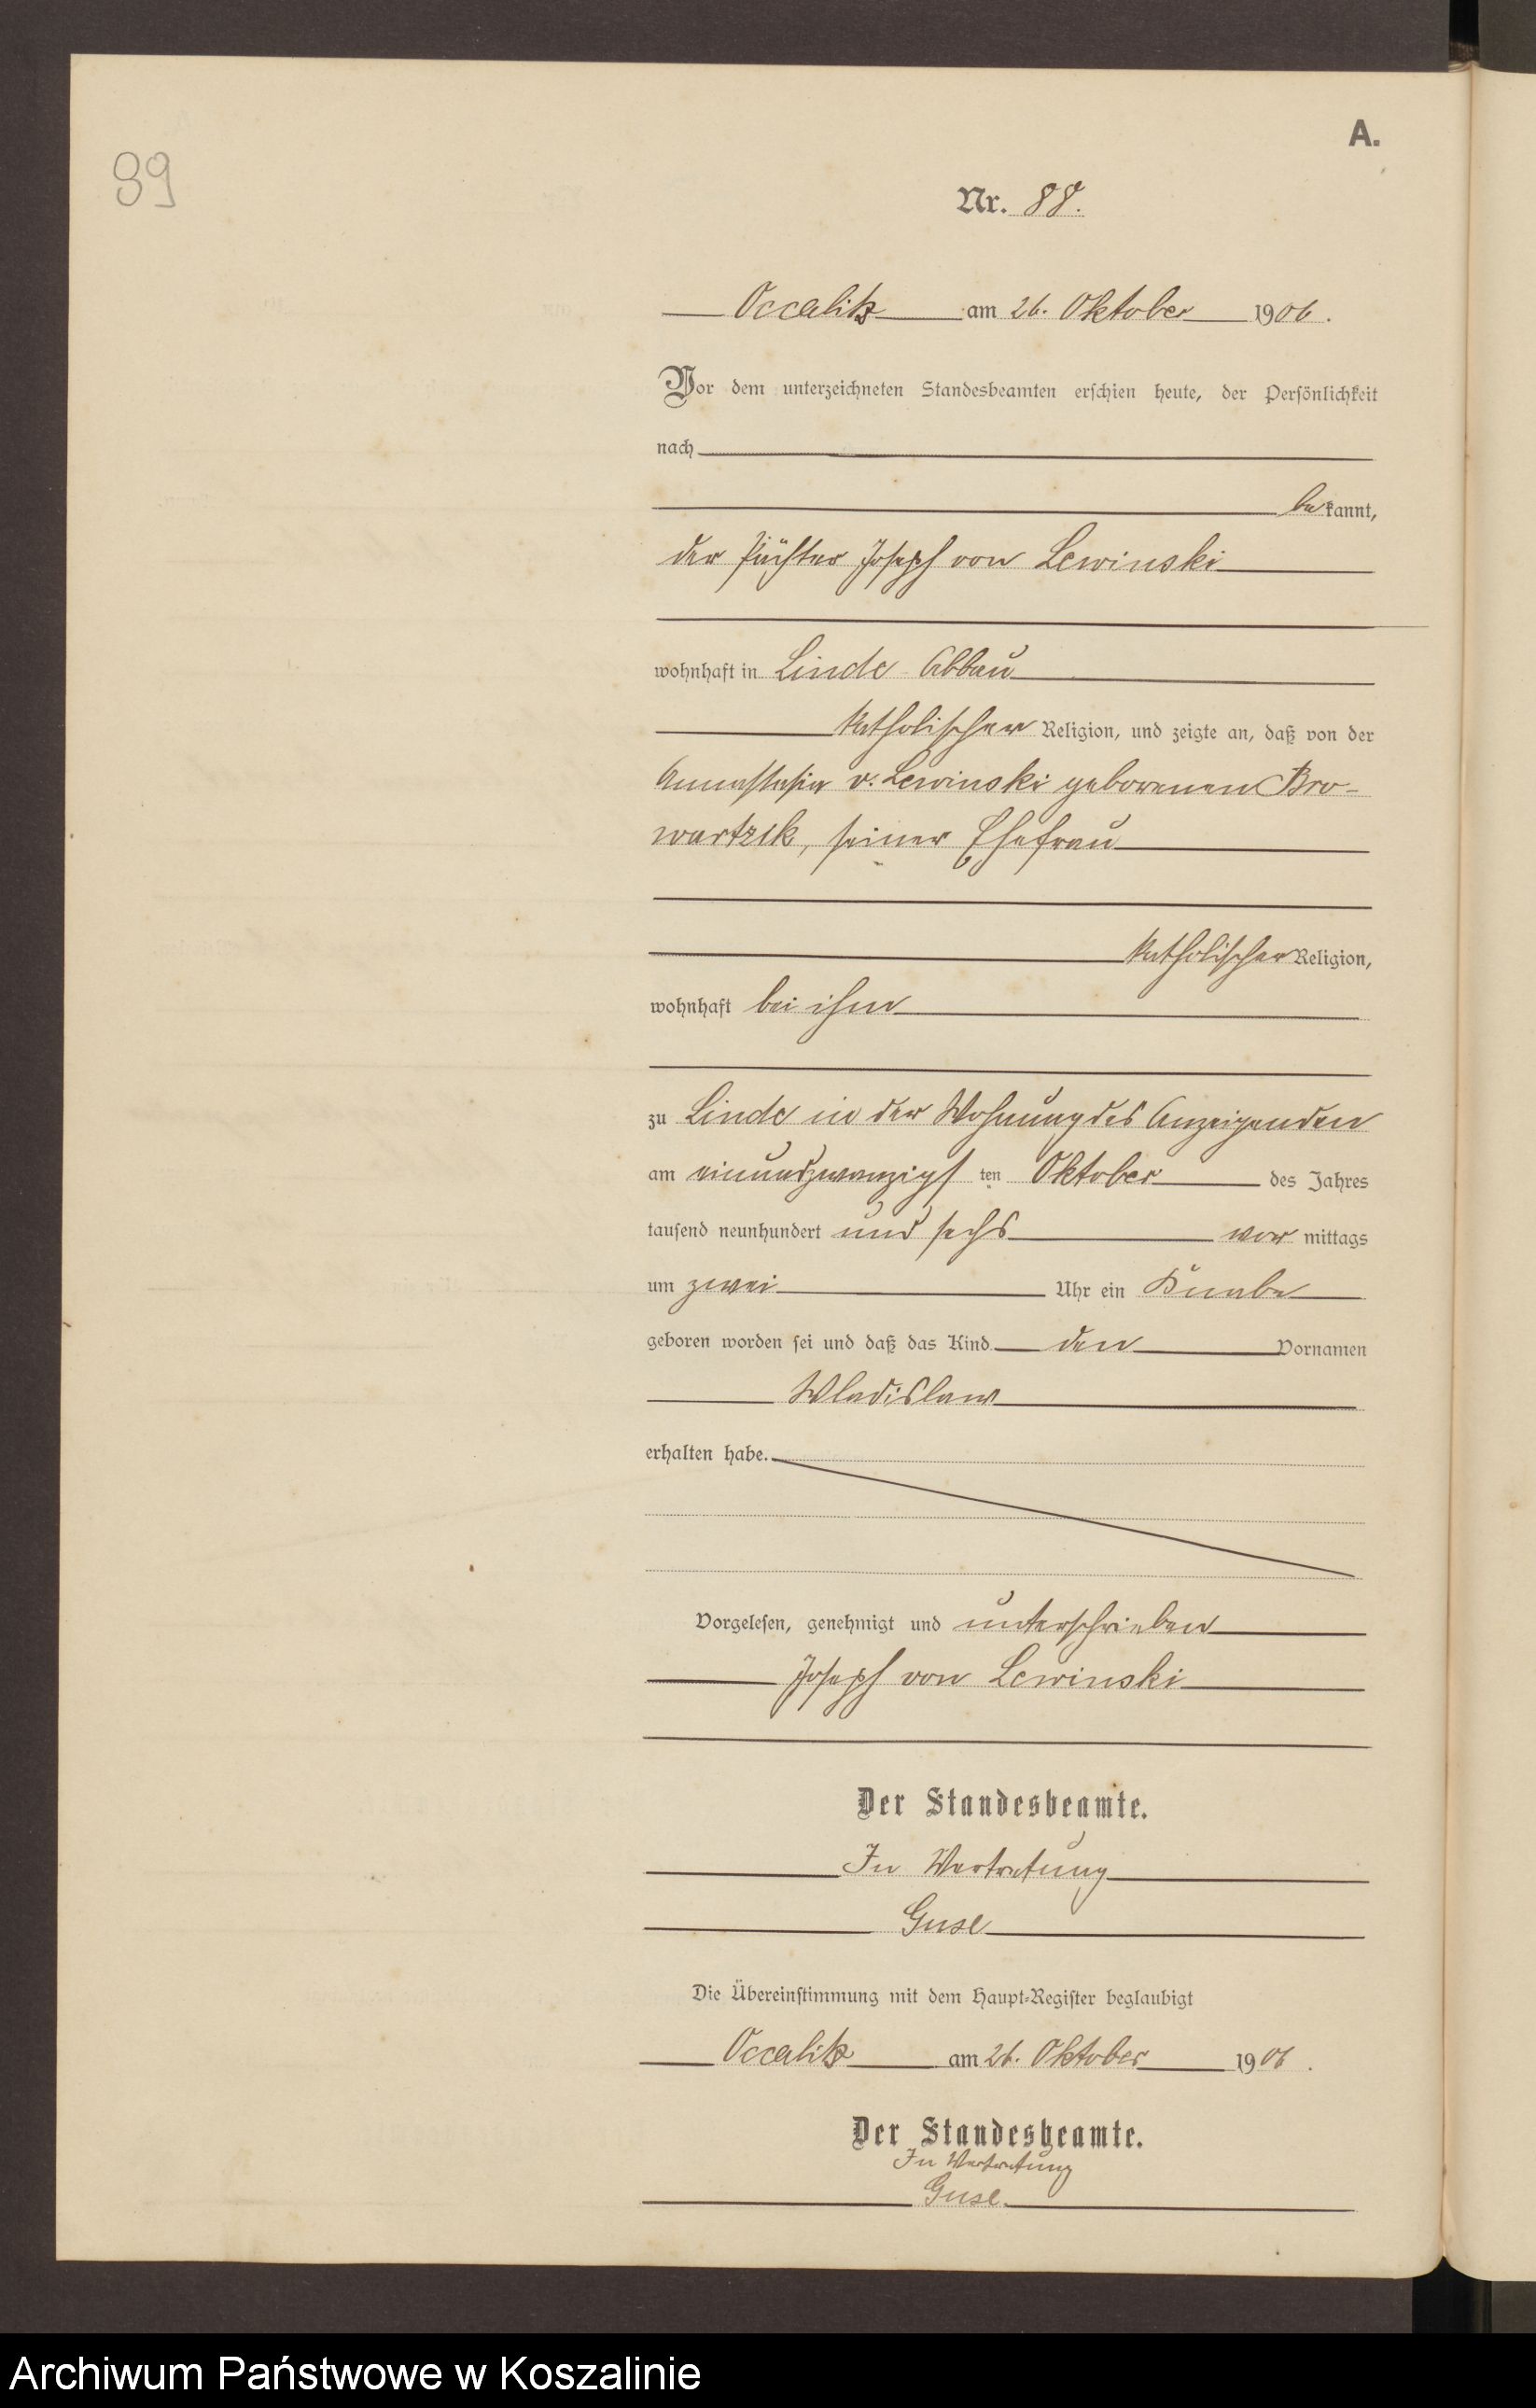 A.
89
Nr. 88.
Occalitz am 26. Oktober 1906.
Vor dem unterzeichneten Standesbeamten erschien heute, der Persönlichkeit
nach
bekannt,
der Pächter Joseph von Lewinski
wohnhaft in Linde Abbau
katholischer Religion, und zeigte an, daß von der
Annastasia v. Lewinski geborenen Bro-
wartzik, seiner Ehefrau
katholischer Religion,
wohnhaft bei ihm
zu Linde in der Wohnung des Anzeigenden
am einundzwanzigsten Oktober des Jahres
tausend neunhundert und sechs vormittags
um zwei Uhr ein Knabe
geboren worden sei und daß das Kind den Vornamen
Wladislaw
erhalten habe.
Vorgelesen, genehmigt und unterschrieben
Joseph von Lewinski
Der Standesbeamte.
In Vertretung
Guse
Die Übereinstimmung mit dem Haupt-Register beglaubigt
Occalitz am 26. Oktober 1906.
Der Standesbeamte.
In Vertretung
Guse
Archiwum Państwowe w Koszalinie